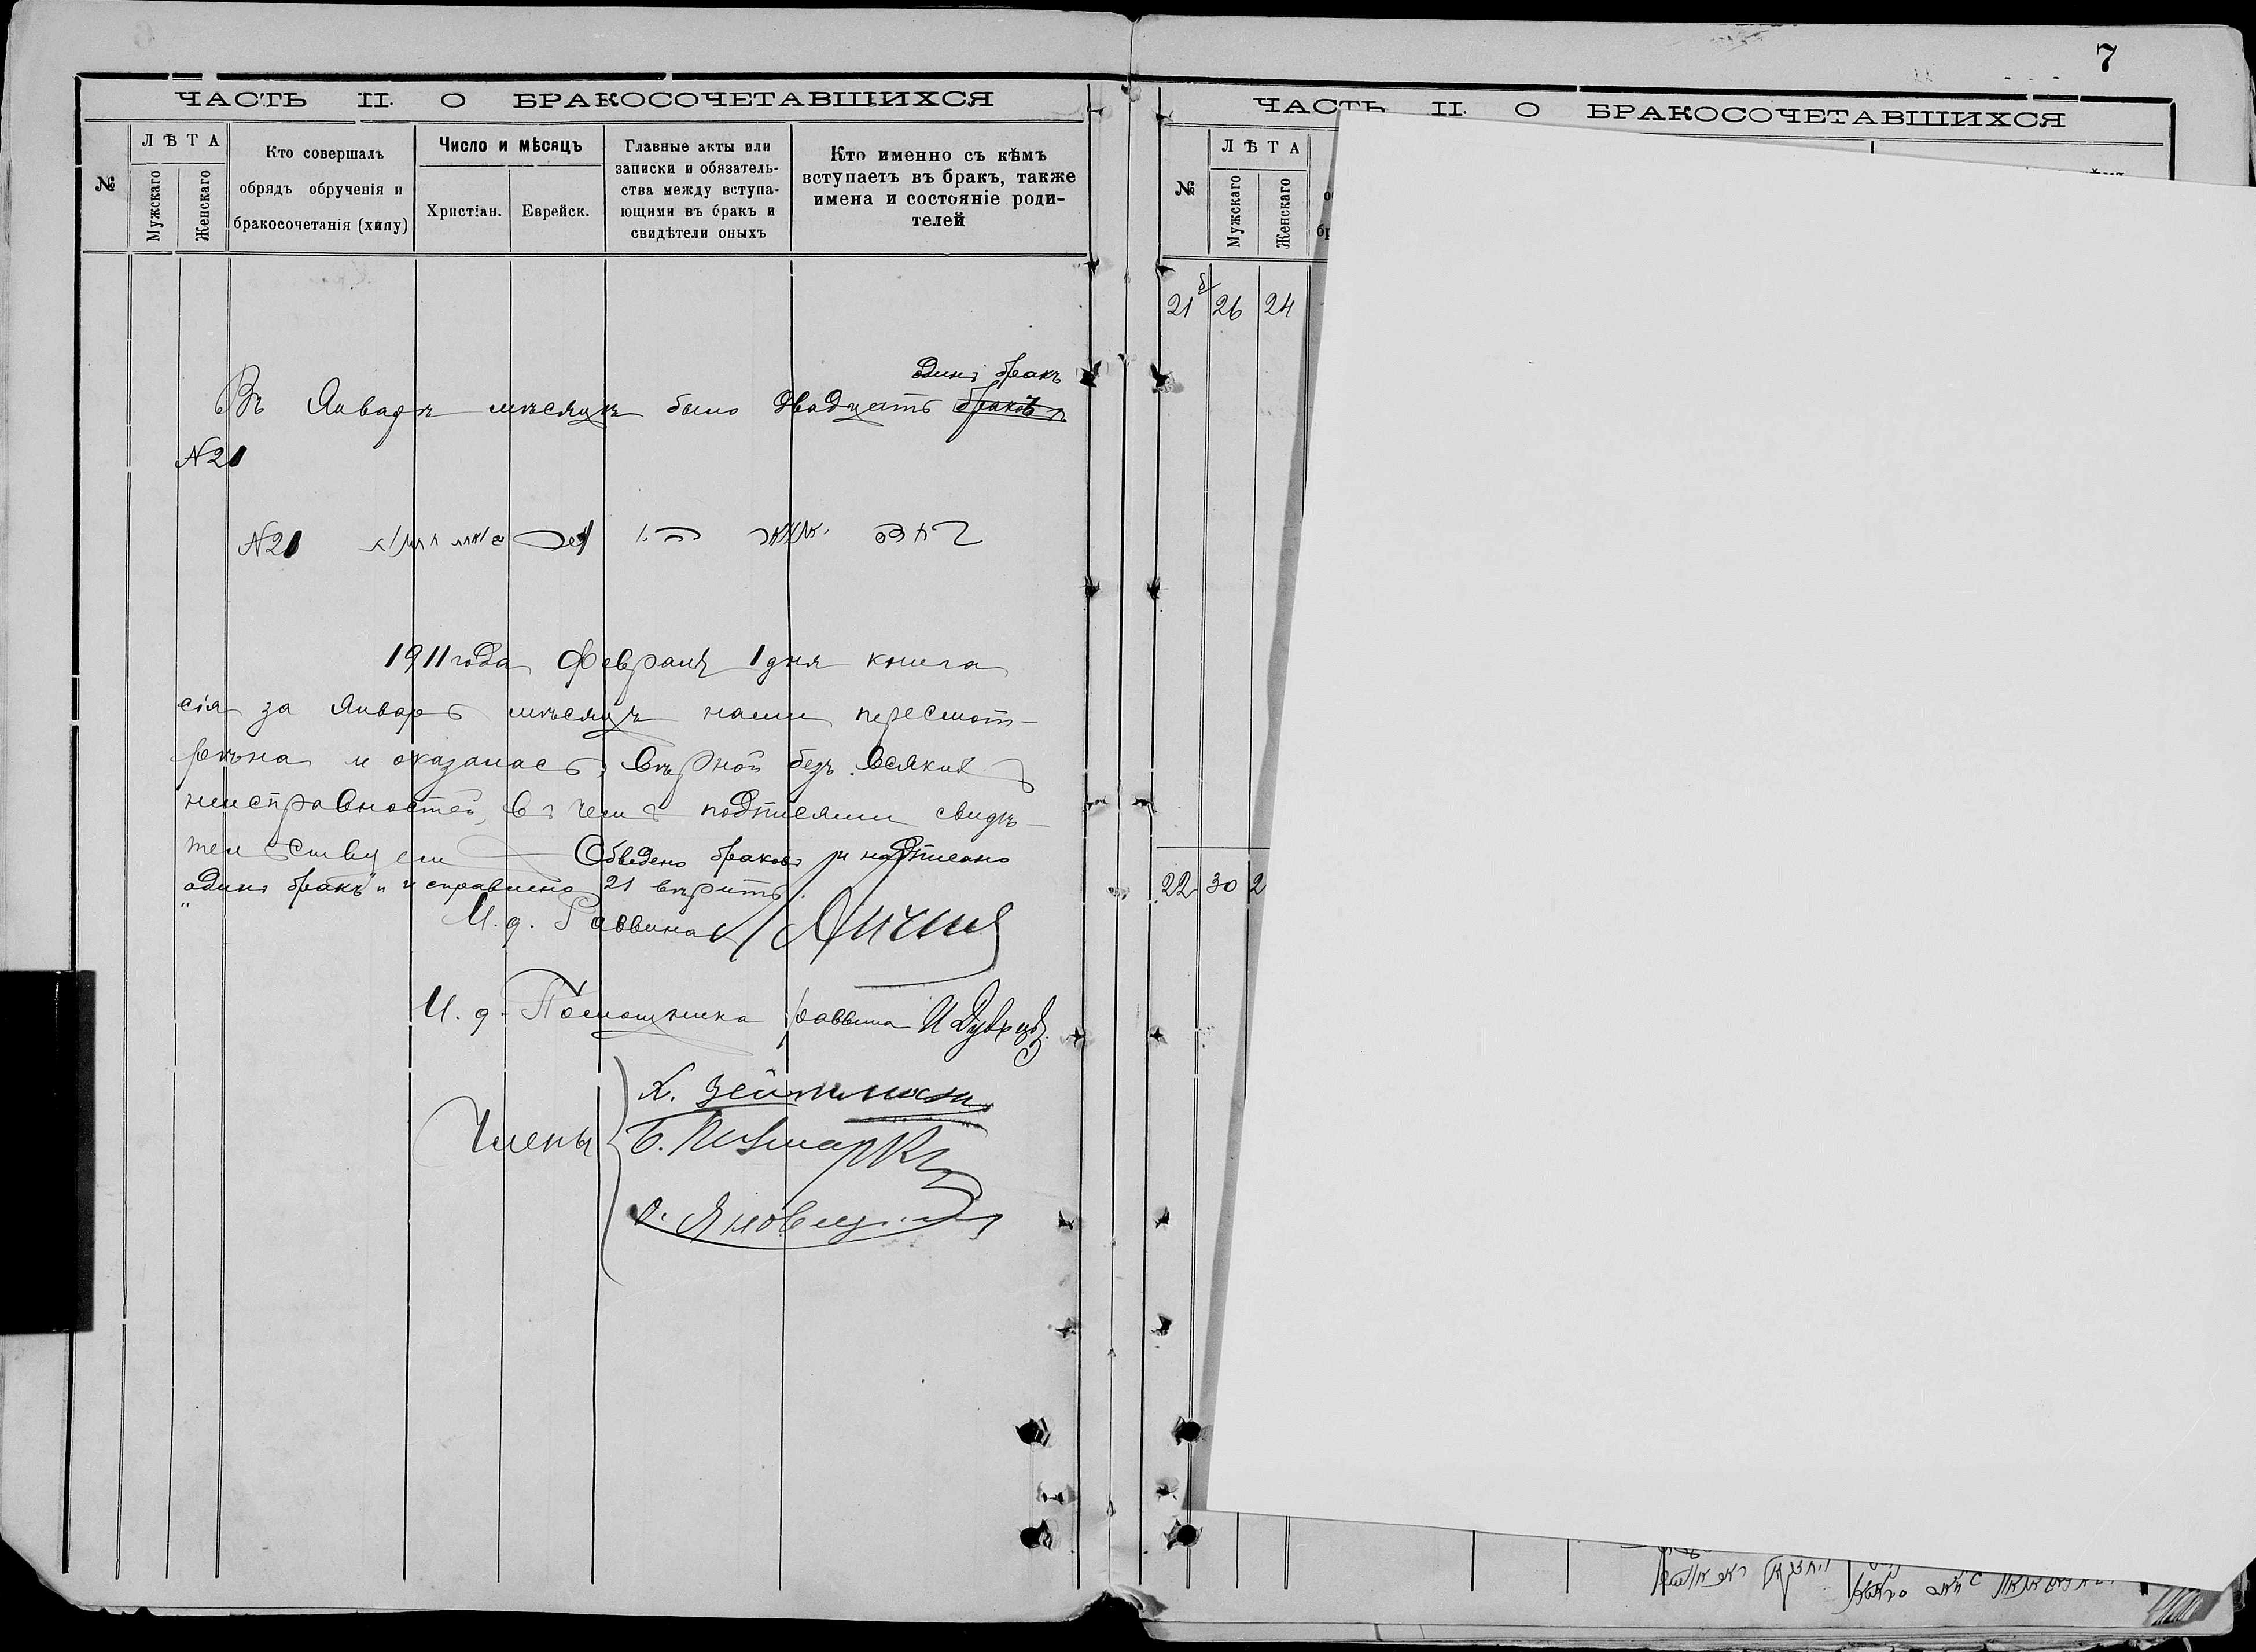 7
ЧАСТЬ II. О БРАКОСОЧЕТАВШИХСЯ
№
ЛѢТА
Мужскаго
Женскаго
Кто совершалъ
обрядъ обрученія и
бракосочетанія (хипу)
Число и мѣсяцъ
Христіан.
Еврейск.
Главные акты или
записки и обязатель-
ства между вступа-
ющими въ бракъ и
свидѣтели оныхъ
Кто именно съ кѣмъ
вступаетъ въ бракъ, также
имена и состояніе роди-
телей
одинъ бракъ
Въ Январѣ мѣсяцѣ было двадцать браковъ
N21
N21
1911 года Февраля 1 дня книга
сія за Январь мѣсяцъ нами пересмот-
рѣна и оказалась вѣрной безъ всякихъ
неисправностей, въ чемъ подписями свидѣ-
тельствуемъ Обведено браковъ и надписано
„одинъ бракъ" и исправлено 21 вѣрить.
И. д. Раввина
И. д. Помощника раввина
Члены
Х.
Б.
ЧАСТЬ II. О БРАКОСОЧЕТАВШИХСЯ
№
ЛѢТА
Мужскаго
Женскаго
21 26 24
22 30 2